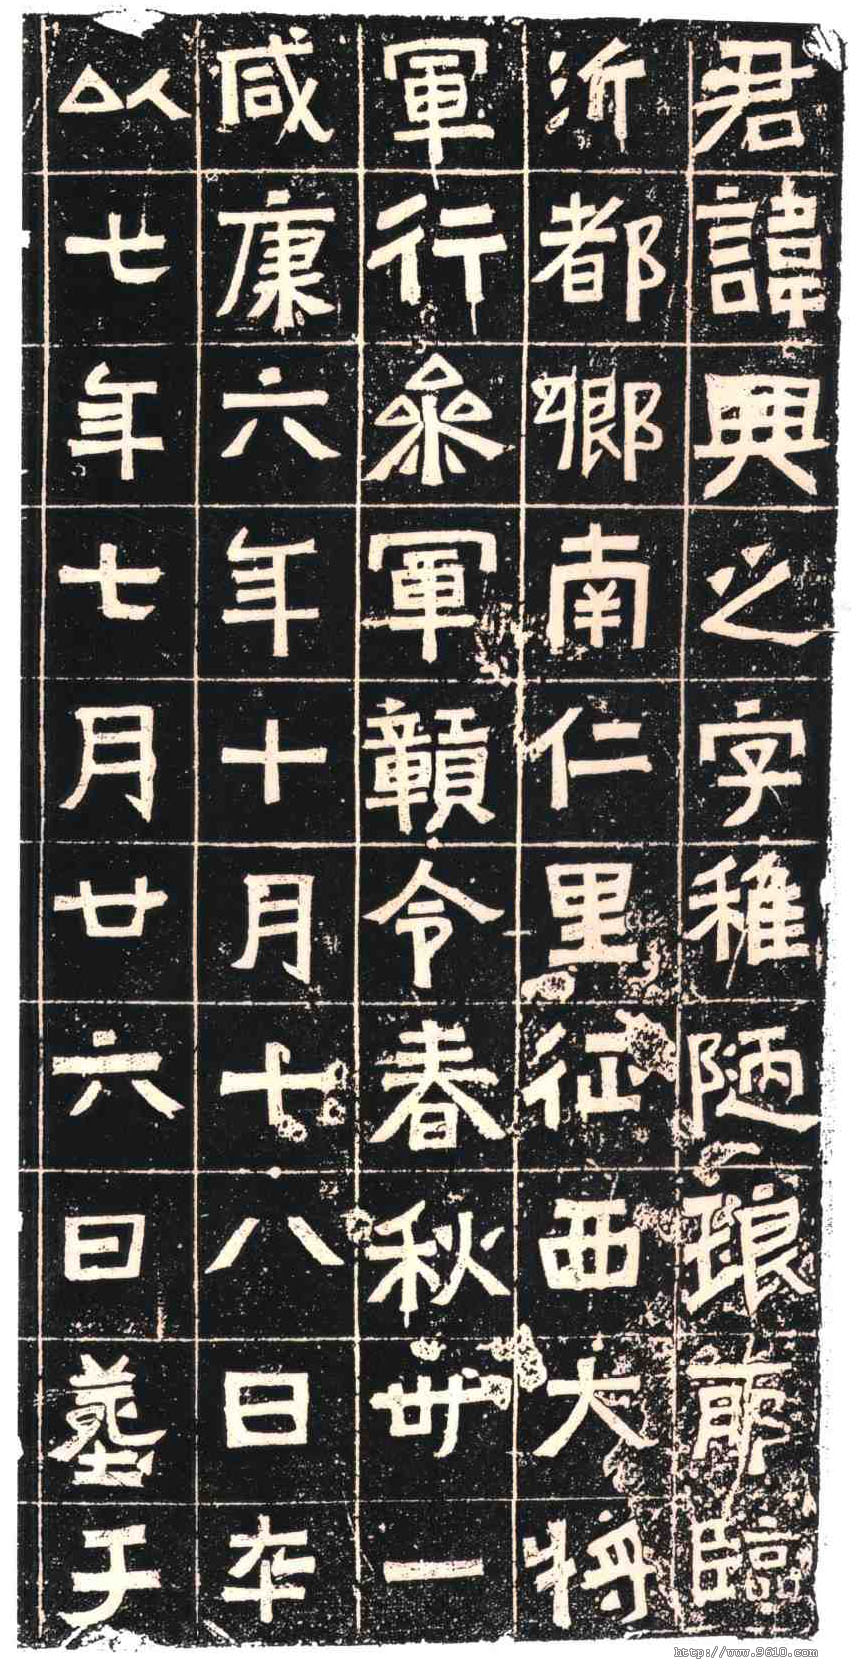 君諱興之字稚陋琅耶臨
沂都鄉南仁里征西大將
軍行參軍贛令春秋卅一
咸康六年十月十八日卒
以七年七月廿六日葬于
http://www.9610.com